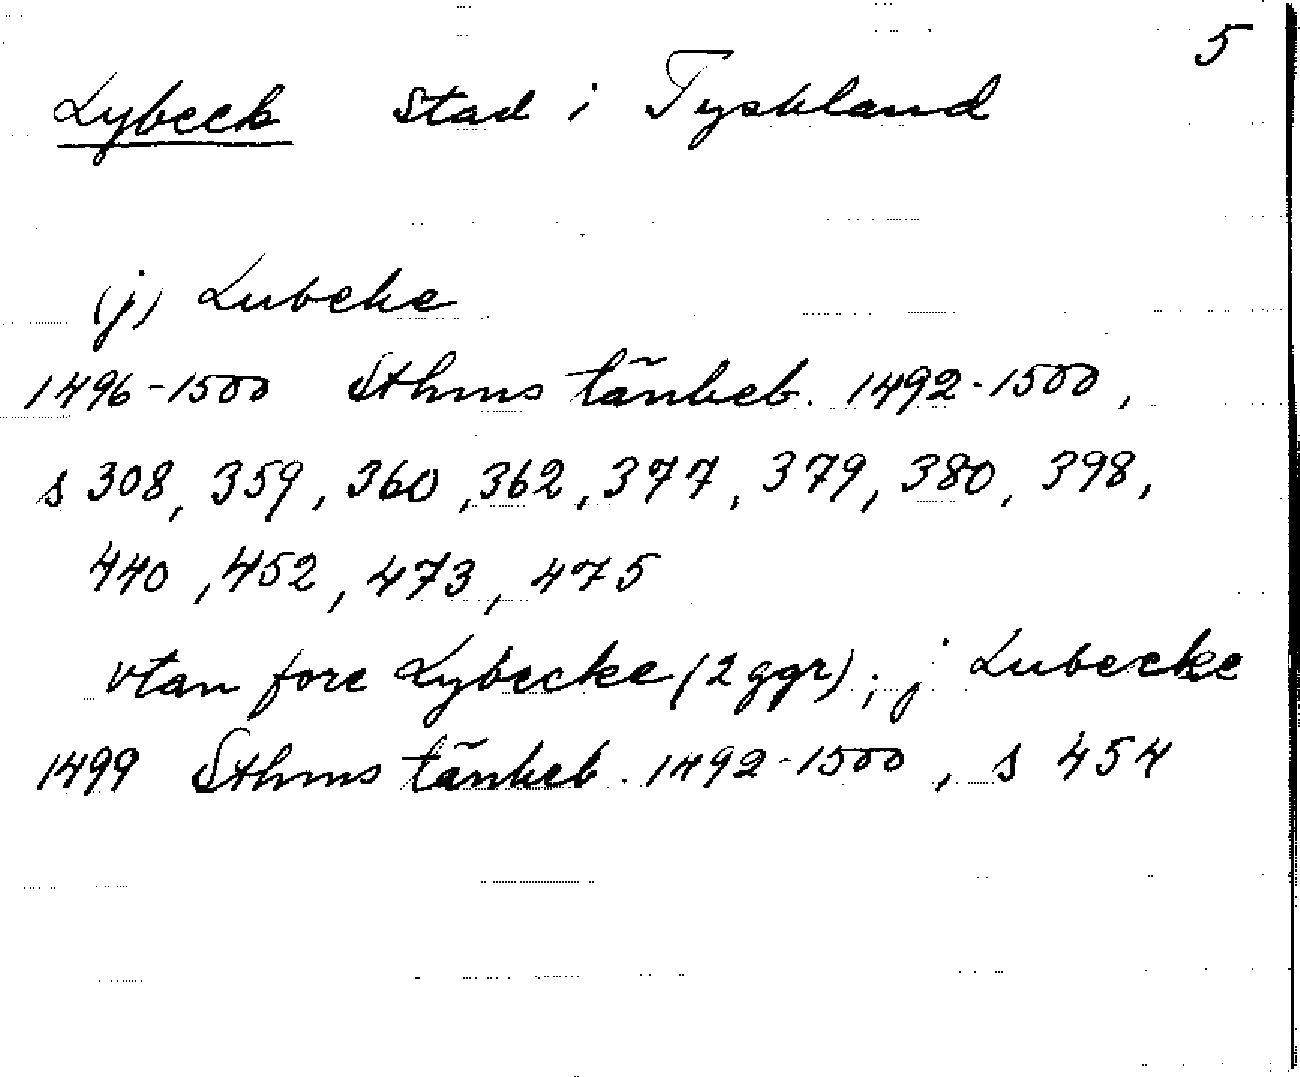 5
Lybeck stad i Tyskland
(j) Lubeke
1496-1500 Sthms tänkeb. 1492-1500,
s 308, 359, 360, 362, 377, 379, 380, 398,
440, 452, 473, 475
vtan fore Lybecke (2 ggr); j Lubecke
1499 Sthms tänkeb. 1492-1500, s 454